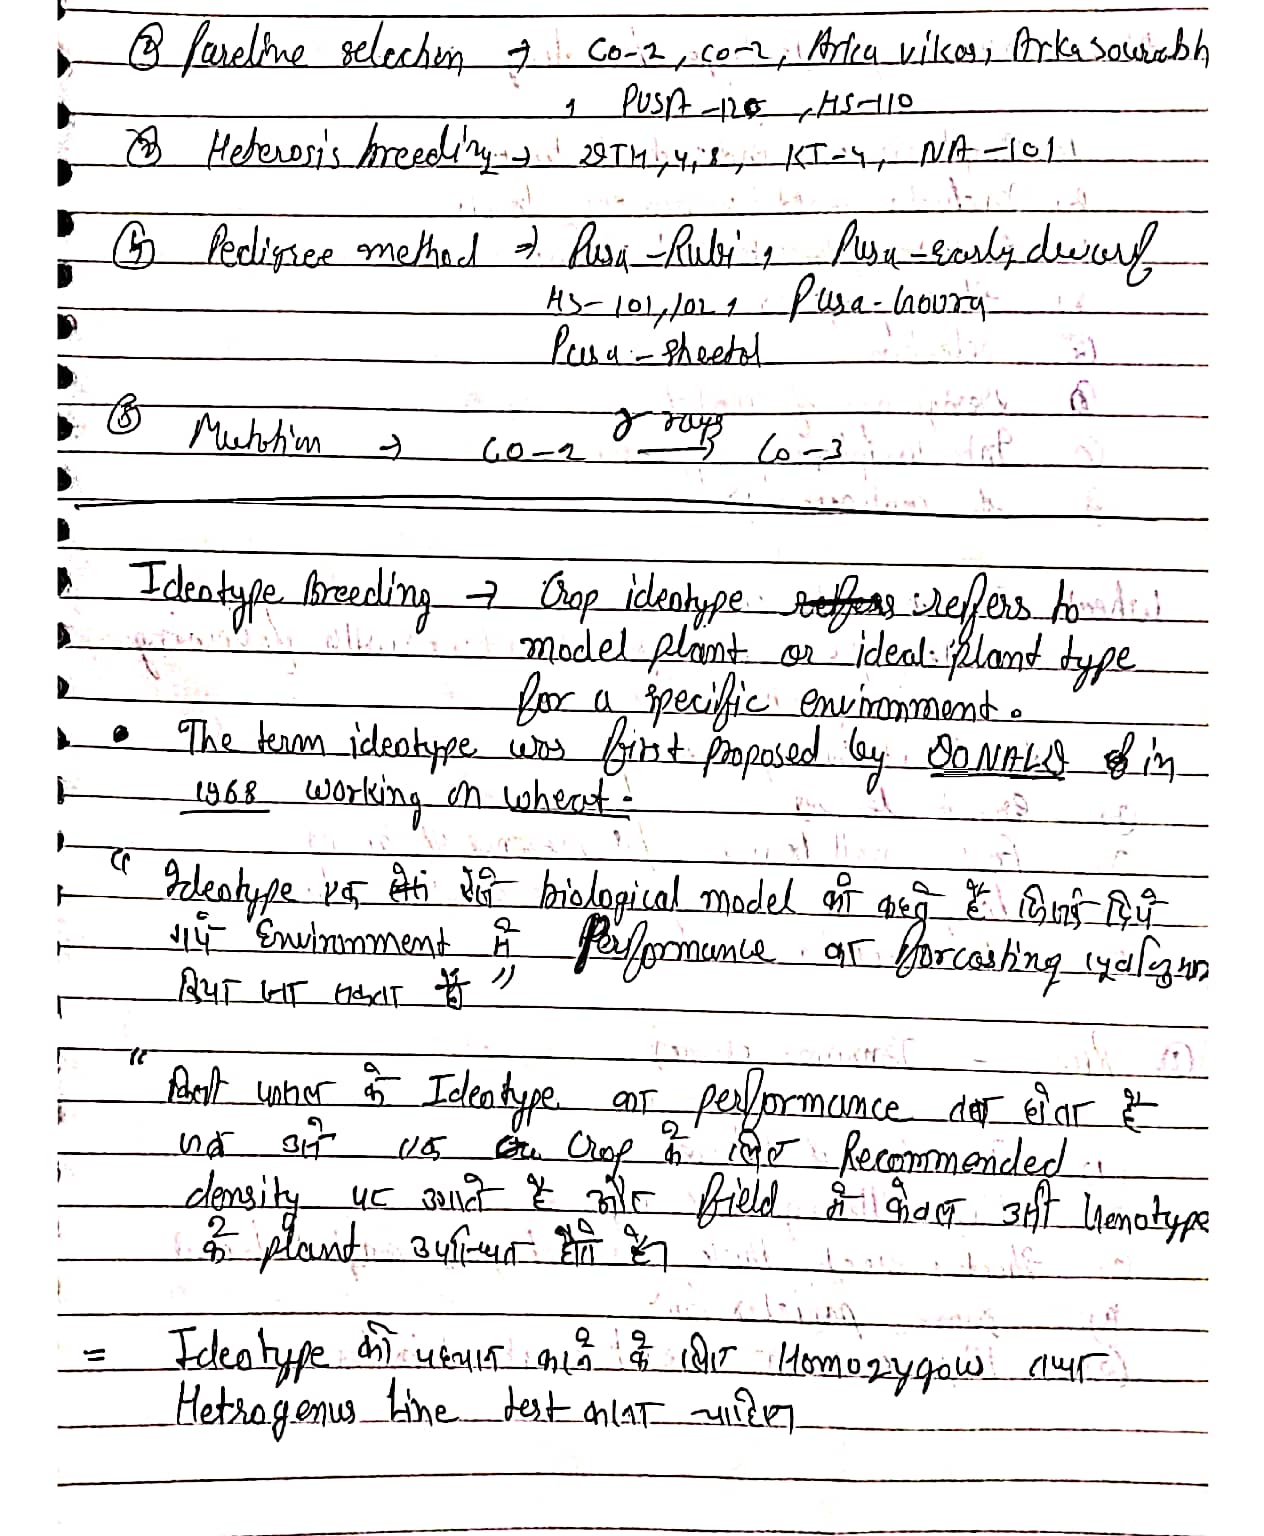 ② Pureline selection → Co-2, co-2, Arka vikas, Arka sourabh
, PUSA -120 , HS-110
③ Heterosis breeding → 29TH, 4, 8, KT-4, NA-101
④ Pedigree method → Pusa-Rubi, Pusa-early dwarf
HS-101, 102, Pusa-Gourg
Pusa-sheetal
⑤ Mutation → CO-2 γ rays → Co-3
Ideotype Breeding → Crop ideotype reffers to
model plant or ideal plant type
for a specific environment.
• The term ideotype was first proposed by DONALD in
1968 working on wheat.
" Ideotype एक ऐसे biological model को कहते है जिससे दिये
गये Environment में Performance का forcasting
किया जा सकता है "
" किसी फसल के Ideotype का performance तब होता है
जब उसे एक Crop के लिए Recommended
density पर उगाते है और field में केवल उसी Genotype
के plant उपस्थित होते है।
= Ideotype की पहचान करने के लिए Homozygous तथा
Hetrogenus Line test करना चाहिए